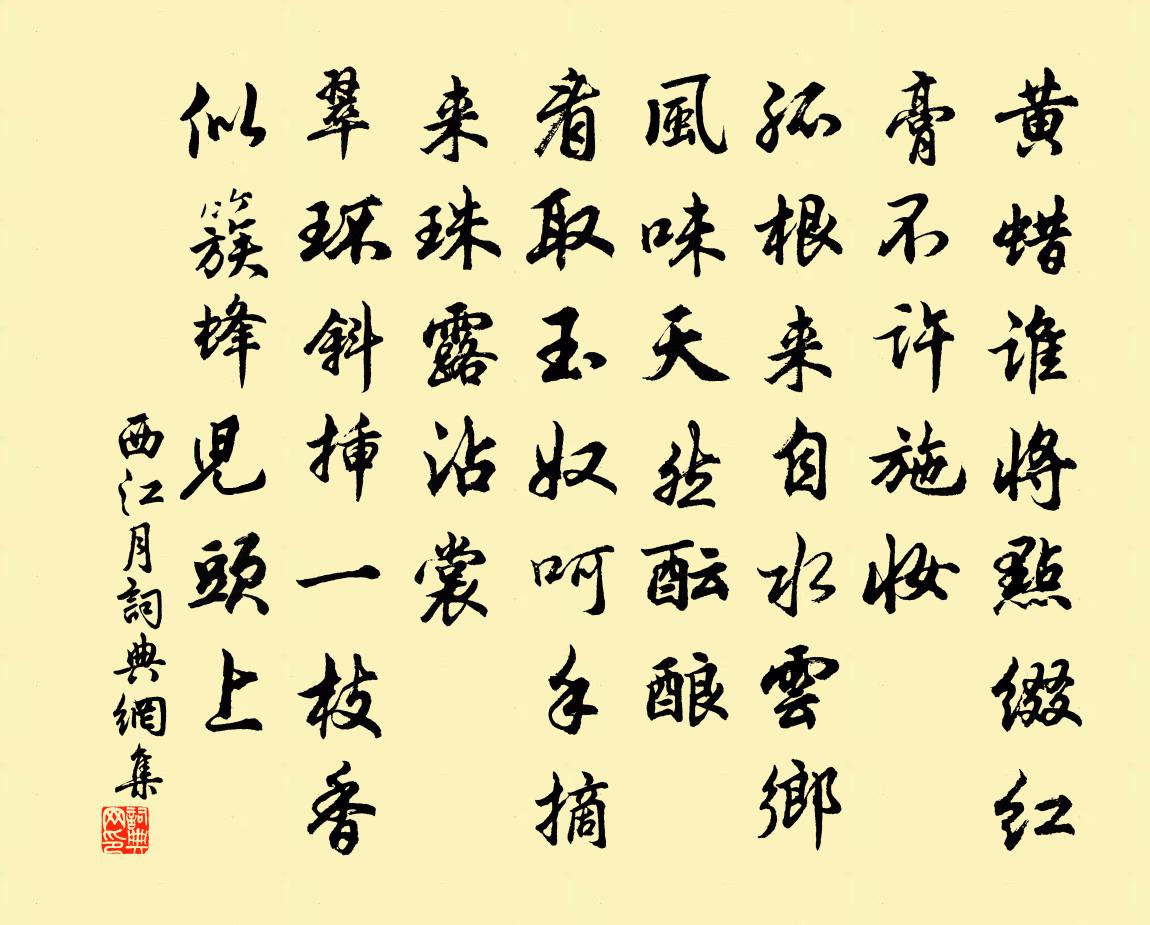 黄蜡谁將點缀红
膏不许施妝
孤根来自水雲鄉
風味天然酝酿
看取玉奴呵手摘
来珠露沾裳
翠环斜挿一枝香
似簇蜂児頭上
西江月詞典網集
詞典網印